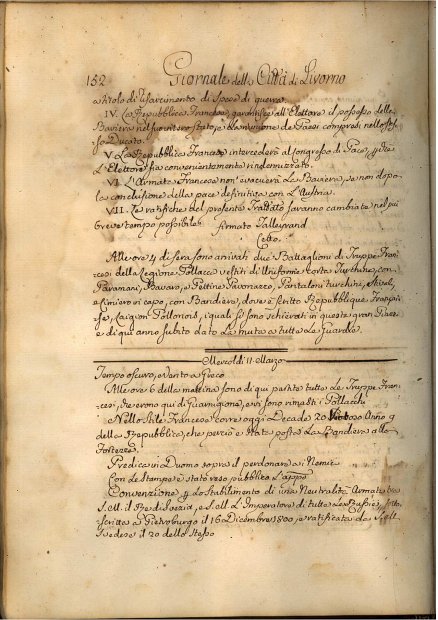 152 Giornale della Città di Livorno
a titolo di risarcimento di spese di guerra.
IV. La Repubblica Francese garantisce all'Elettore il possesso della
Baviera nel suo intero stato, e la riunione de Paesi compresi nello stes
so Ducato.
V. La Repubblica Francese intercederà al congresso di Pace, per che
L'Elettore sia convenientemente rindennizzato.
VI. L'Armata Francese non evacuerà La Baviera, se non dopo
la conclusione della pace definitiva con L'Austria.
VII. Le ratifiche del presente Trattato saranno cambiate nel più
breve tempo possibile. firmato Talleyrand
Cetto.
Alle ore 4 di sera sono arrivati due Battaglioni di Truppe Fran
cesi della Legione Pollacca vestiti di Uniforme corta Turchina, con
Paramani, Bavaro, e Pettine Pavonazzo, Pantaloni turchini, Stivali,
e Cimiero in capo, con Bandiera, dove è scritto Republique
Legion Pollonois, i quali si sono schierati in questa gran Piazza
e di qui anno subito dato La muta a tutte Le Guardie.
Mercoldì 11 Marzo
Tempo oscuro, e vento a Greco
Alle ore 6 della mattina sono di qui partite tutte Le Truppe Fran
cesi, che erono qui di Guarnigione, e vi sono rimasti i Pollacchi
Nello Stile Francese corre oggi Decade 20 Anno 9
della Repubblica, che perciò è stata posta La Bandiera alle
Fortezze.
Predica in Duomo sopra il perdonare a i Nemici
Con Le Stampe è stato reso pubblico L'app.
Convenzione per Lo stabilimento di una Neutralità Armata tra
S. M. il Re di Svezia, e S. M. L'Imperatore di tutte Le Russie, sotto
scritta a Pietroburgo il 16 Dicembre 1800, e ratificata da
il 20 dello Stesso